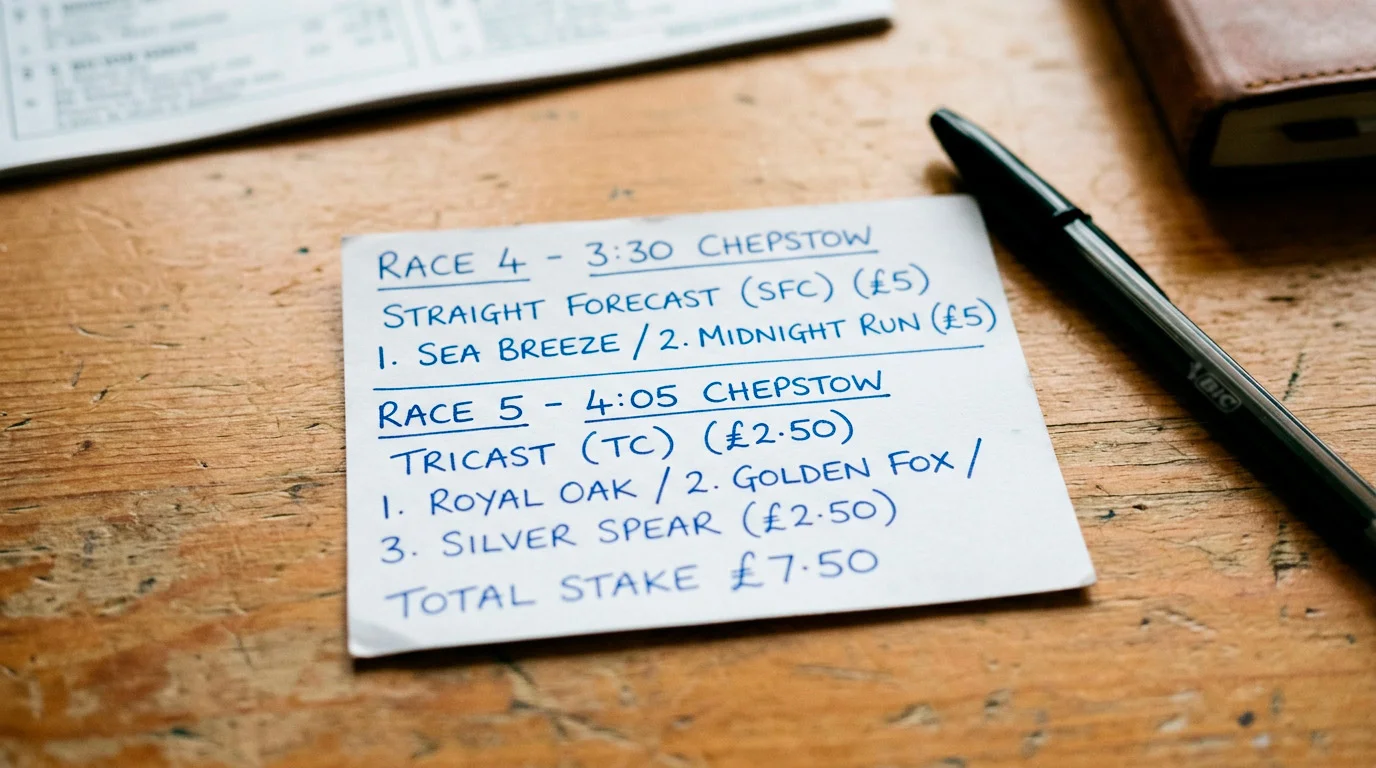 RACE 4 - 3:30 CHEPSTOW
STRAIGHT FORECAST (SFC) (£5)
1. SEA BREEZE / 2. MIDNIGHT RUN (£5)
RACE 5 - 4:05 CHEPSTOW
TRICAST (TC) (£2.50)
1. ROYAL OAK / 2. GOLDEN FOX /
3. SILVER SPEAR (£2.50)
TOTAL STAKE £7.50
BIC